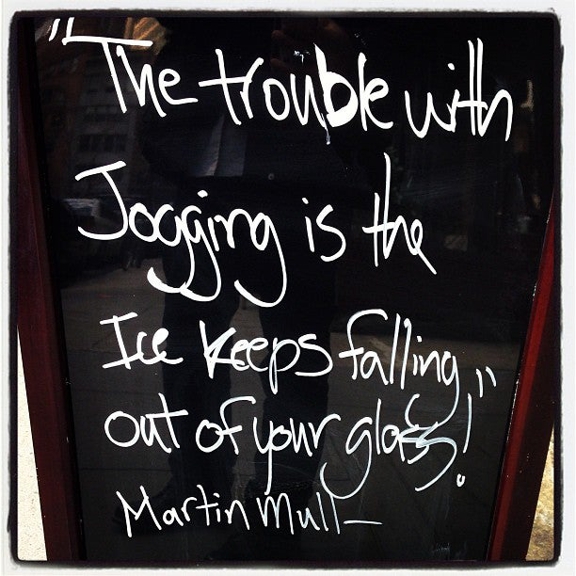 "The trouble with
Jogging is the
Ice keeps falling
out of your glass!"
Martin Mull–